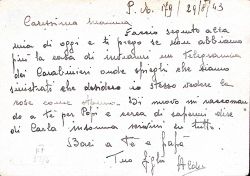 P. M. 179 / 29/8/43
Carissima mamma
Faccio seguito alla
mia di oggi e ti prego se non abbiamo
più la casa di inviarmi un telegramma
dei Carabinieri onde spieghi che siamo
sinistrati che desidero io stesso vedere le
cose come stanno. Mi raccoman
do a te per Popi e cerca di sapermi dire
di Carla insomma scrivi su tutto.
Baci a Te e papà
Tuo figlio Aldo